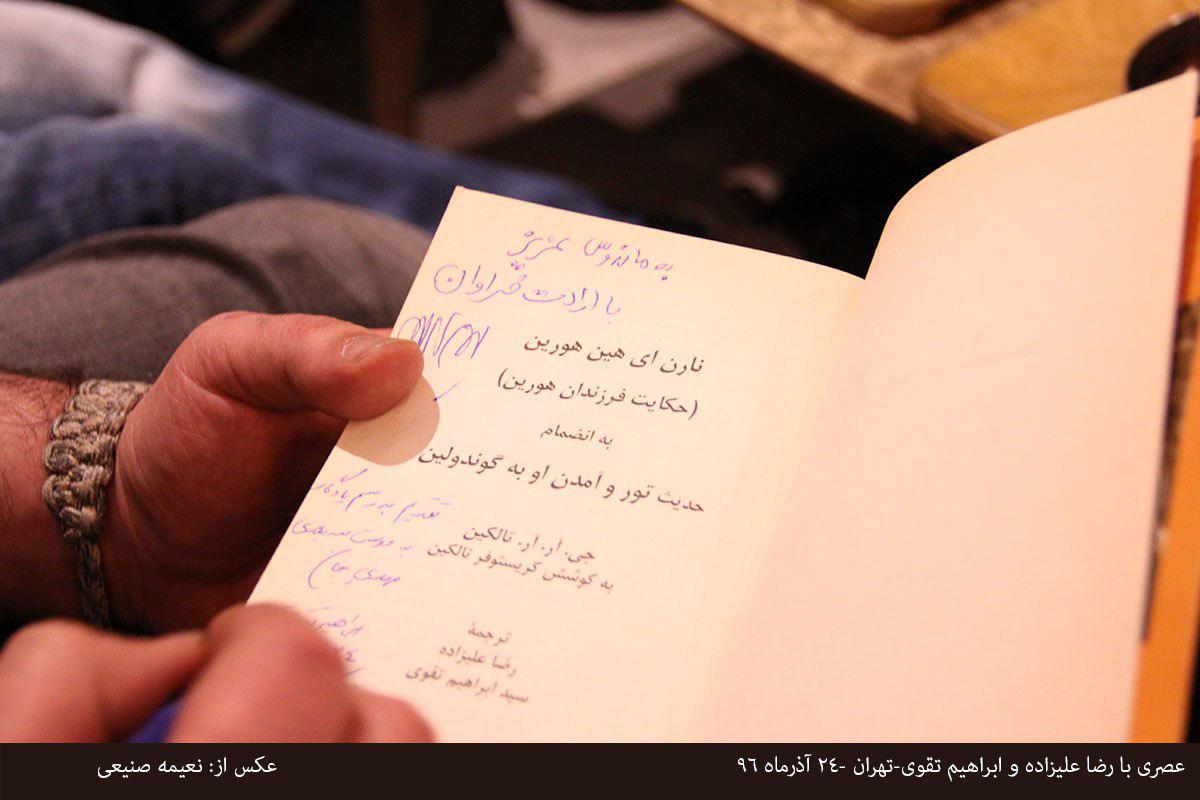 به ماندوس عزیز
با ارادت فراوان
نارن ای هین هورین
(حکایت فرزندان هورین)
به انضمام
حدیث تور و آمدن او به گوندولین
تقدیم به رسم یادگار
جی. آر. آر. تالکین
به دوست
به کوشش کریستوفر تالکین
مهدی جان
ترجمهٔ
رضا علیزاده
سید ابراهیم تقوی
عصری با رضا علیزاده و ابراهیم تقوی-تهران -٢٤ آذرماه ٩٦
عکس از: نعیمه صنیعی